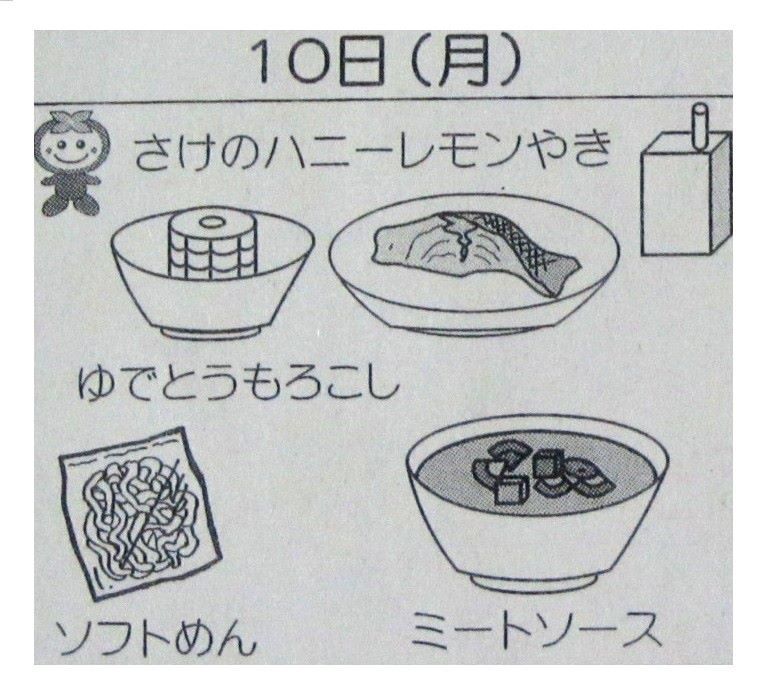 10日(月)
さけのハニーレモンやき
ゆでとうもろこし
ソフトめん
ミートソース